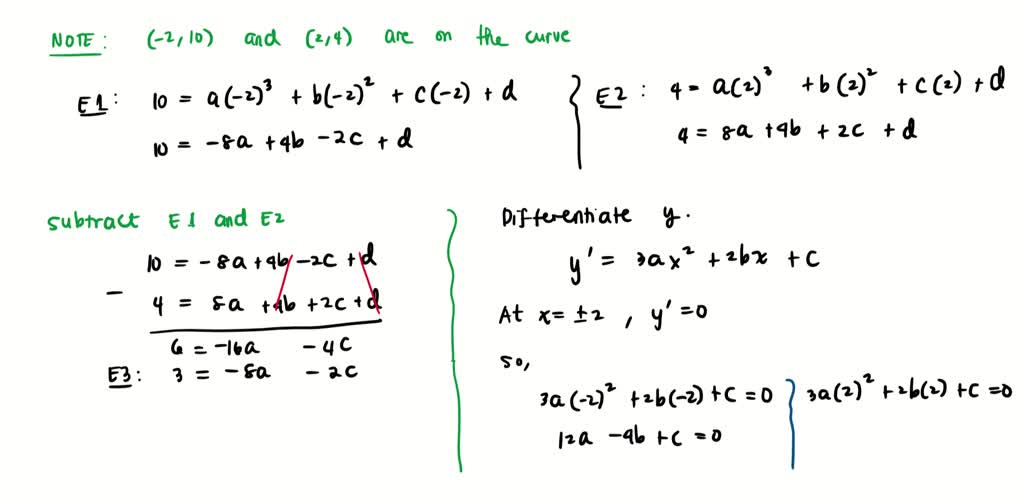 NOTE: (-2, 10) and (2, 4) are on the curve
E1: 10 = a(-2)³ + b(-2)² + c(-2) + d
10 = -8a + 4b - 2c + d
E2: 4 = a(2)³ + b(2)² + c(2) + d
4 = 8a + 4b + 2c + d
subtract E1 and E2
10 = -8a + 4b - 2c + d
- 4 = 8a + 4b + 2c + d
6 = -16a - 4c
E3: 3 = -8a - 2c
Differentiate y.
y' = 3ax² + 2bx + c
At x = ±2 , y' = 0
so,
3a(-2)² + 2b(-2) + c = 0
12a - 4b + c = 0
3a(2)² + 2b(2) + c = 0